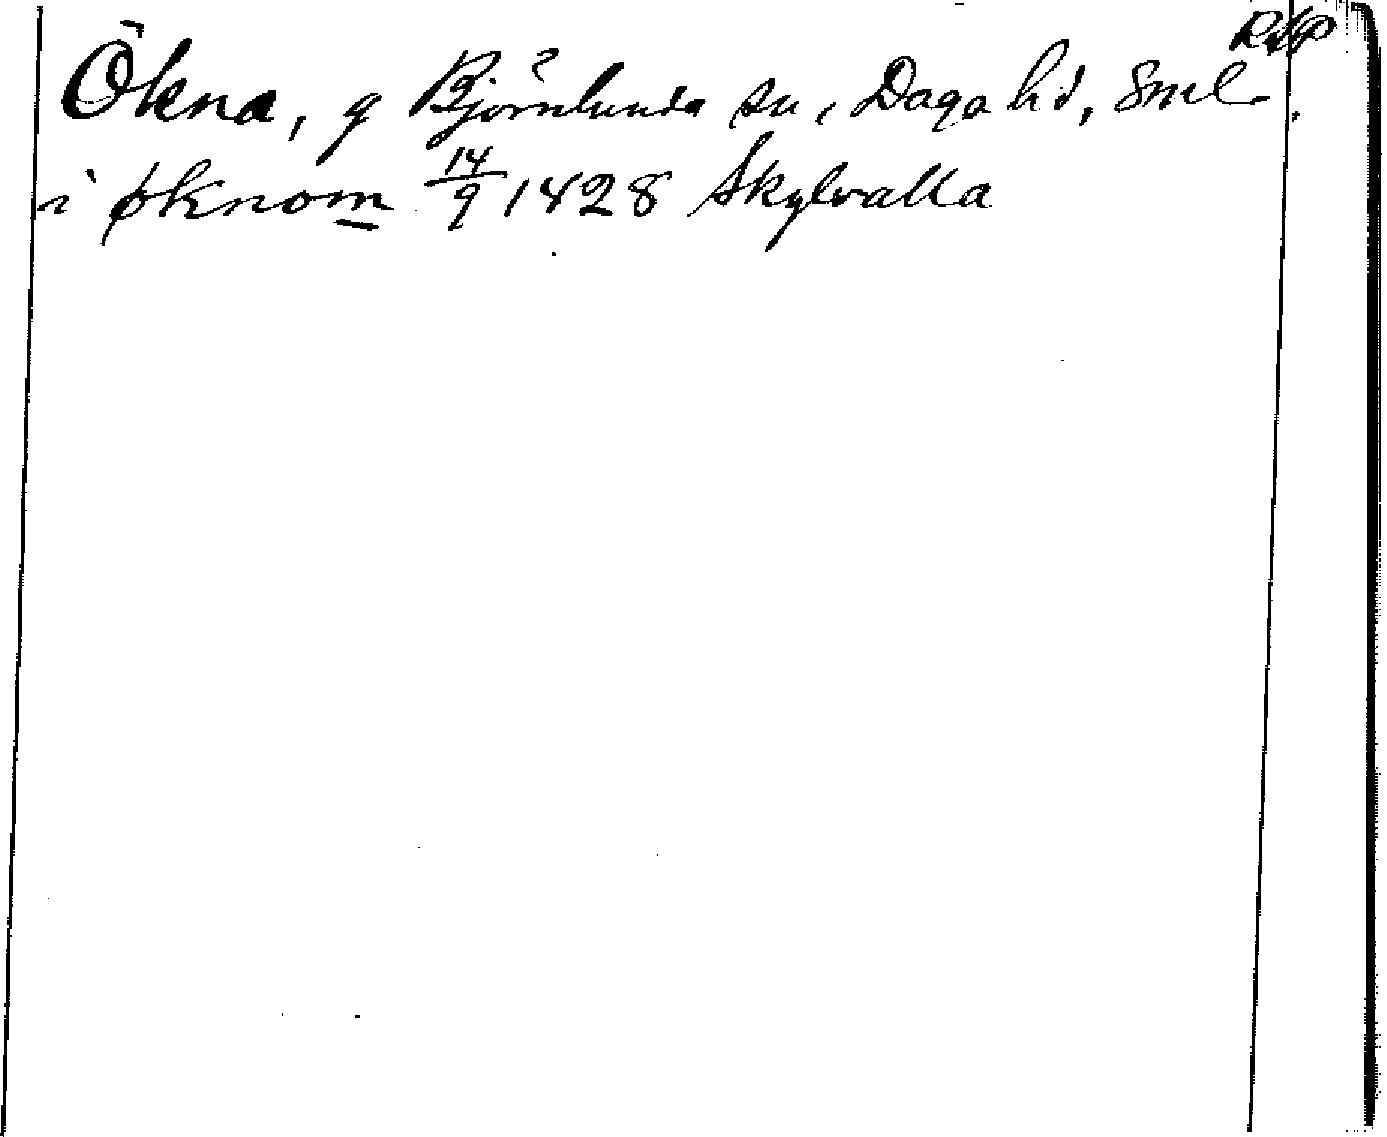 RAP
Ökna, g Björnlunda sn, Daga hd, Sml.
i øknom 14/9 1428 Skylvalla